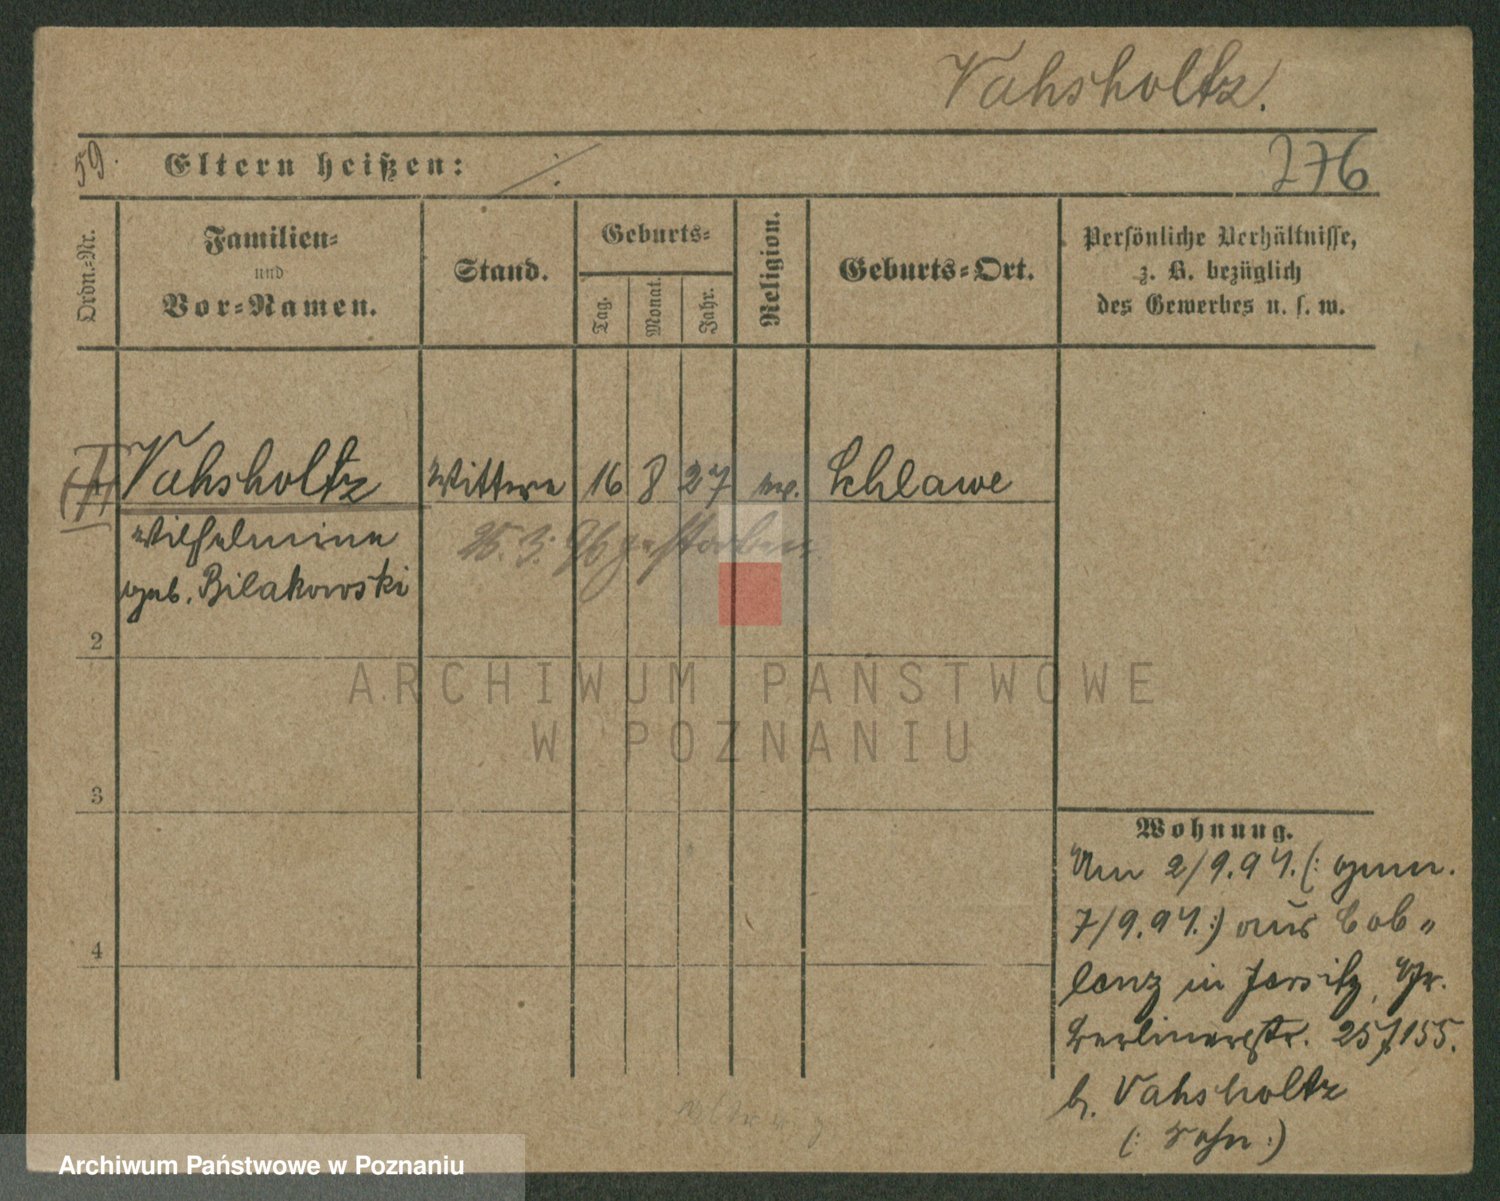 Vahsholtz.
59. Eltern heißen: ./. 276
Ordn.=Nr.
Familien=
und
Vor=Namen.
Stand.
Geburts=
Tag.
Monat.
Jahr.
Religion.
Geburts=Ort.
Persönliche Verhältnisse,
z. B. bezüglich
des Gewerbes u. s. w.
Vahsholtz Wittwe 16 8 27 ev. Schlawe
Wilhelmine
geb. Bilakowski
25.3.96 gestorben
2
3
4
Wohnung.
Am 2/9.94. (: gem.
7/9.94. :) aus Cob„
lenz in Jersitz, Gr.
Berlinerstr. 257/155.
b. Vahsholtz
(: Sohn :)
ARCHIWUM PAŃSTWOWE
W POZNANIU
Archiwum Państwowe w Poznaniu